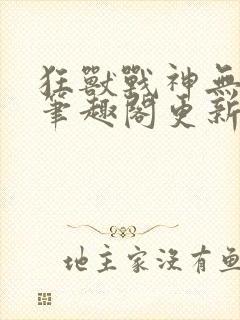 狂獸戰神無
筆趣閣更新
地主家沒有魚